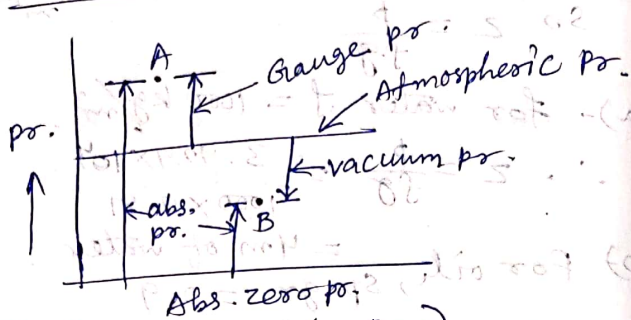 A
Gauge pr.
Atmospheric Pr.
pr.
vacuum pr.
abs.
pr.
B
Abs. zero pr.